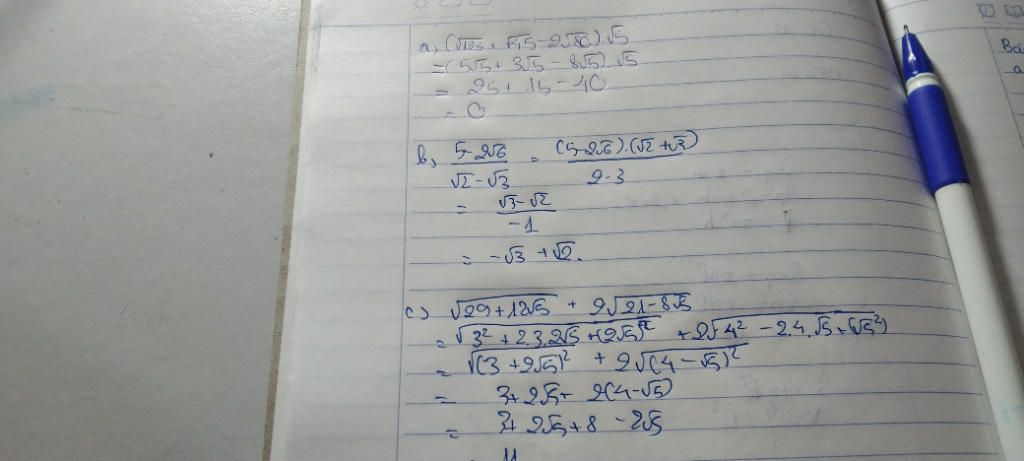 a, (√125 + √45 - 2√80).√5
= (5√5 + 3√5 - 8√5).√5
= 25 + 15 - 40
= 0
b, (5-2√6)/(√2-√3) = ((5-2√6).(√2+√3))/(2-3)
= (√3-√2)/(-1)
= -√3 + √2.
c) √(29+12√5) + 2√(21-8√5)
= √(3² + 2.3.2√5 + (2√5)²) + 2√(4² - 2.4.√5 + (√5²)
= √(3 + 2√5)² + 2√(4 - √5)²
= 3 + 2√5 + 2(4-√5)
= 3 + 2√5 + 8 - 2√5
= 11
Bài
a